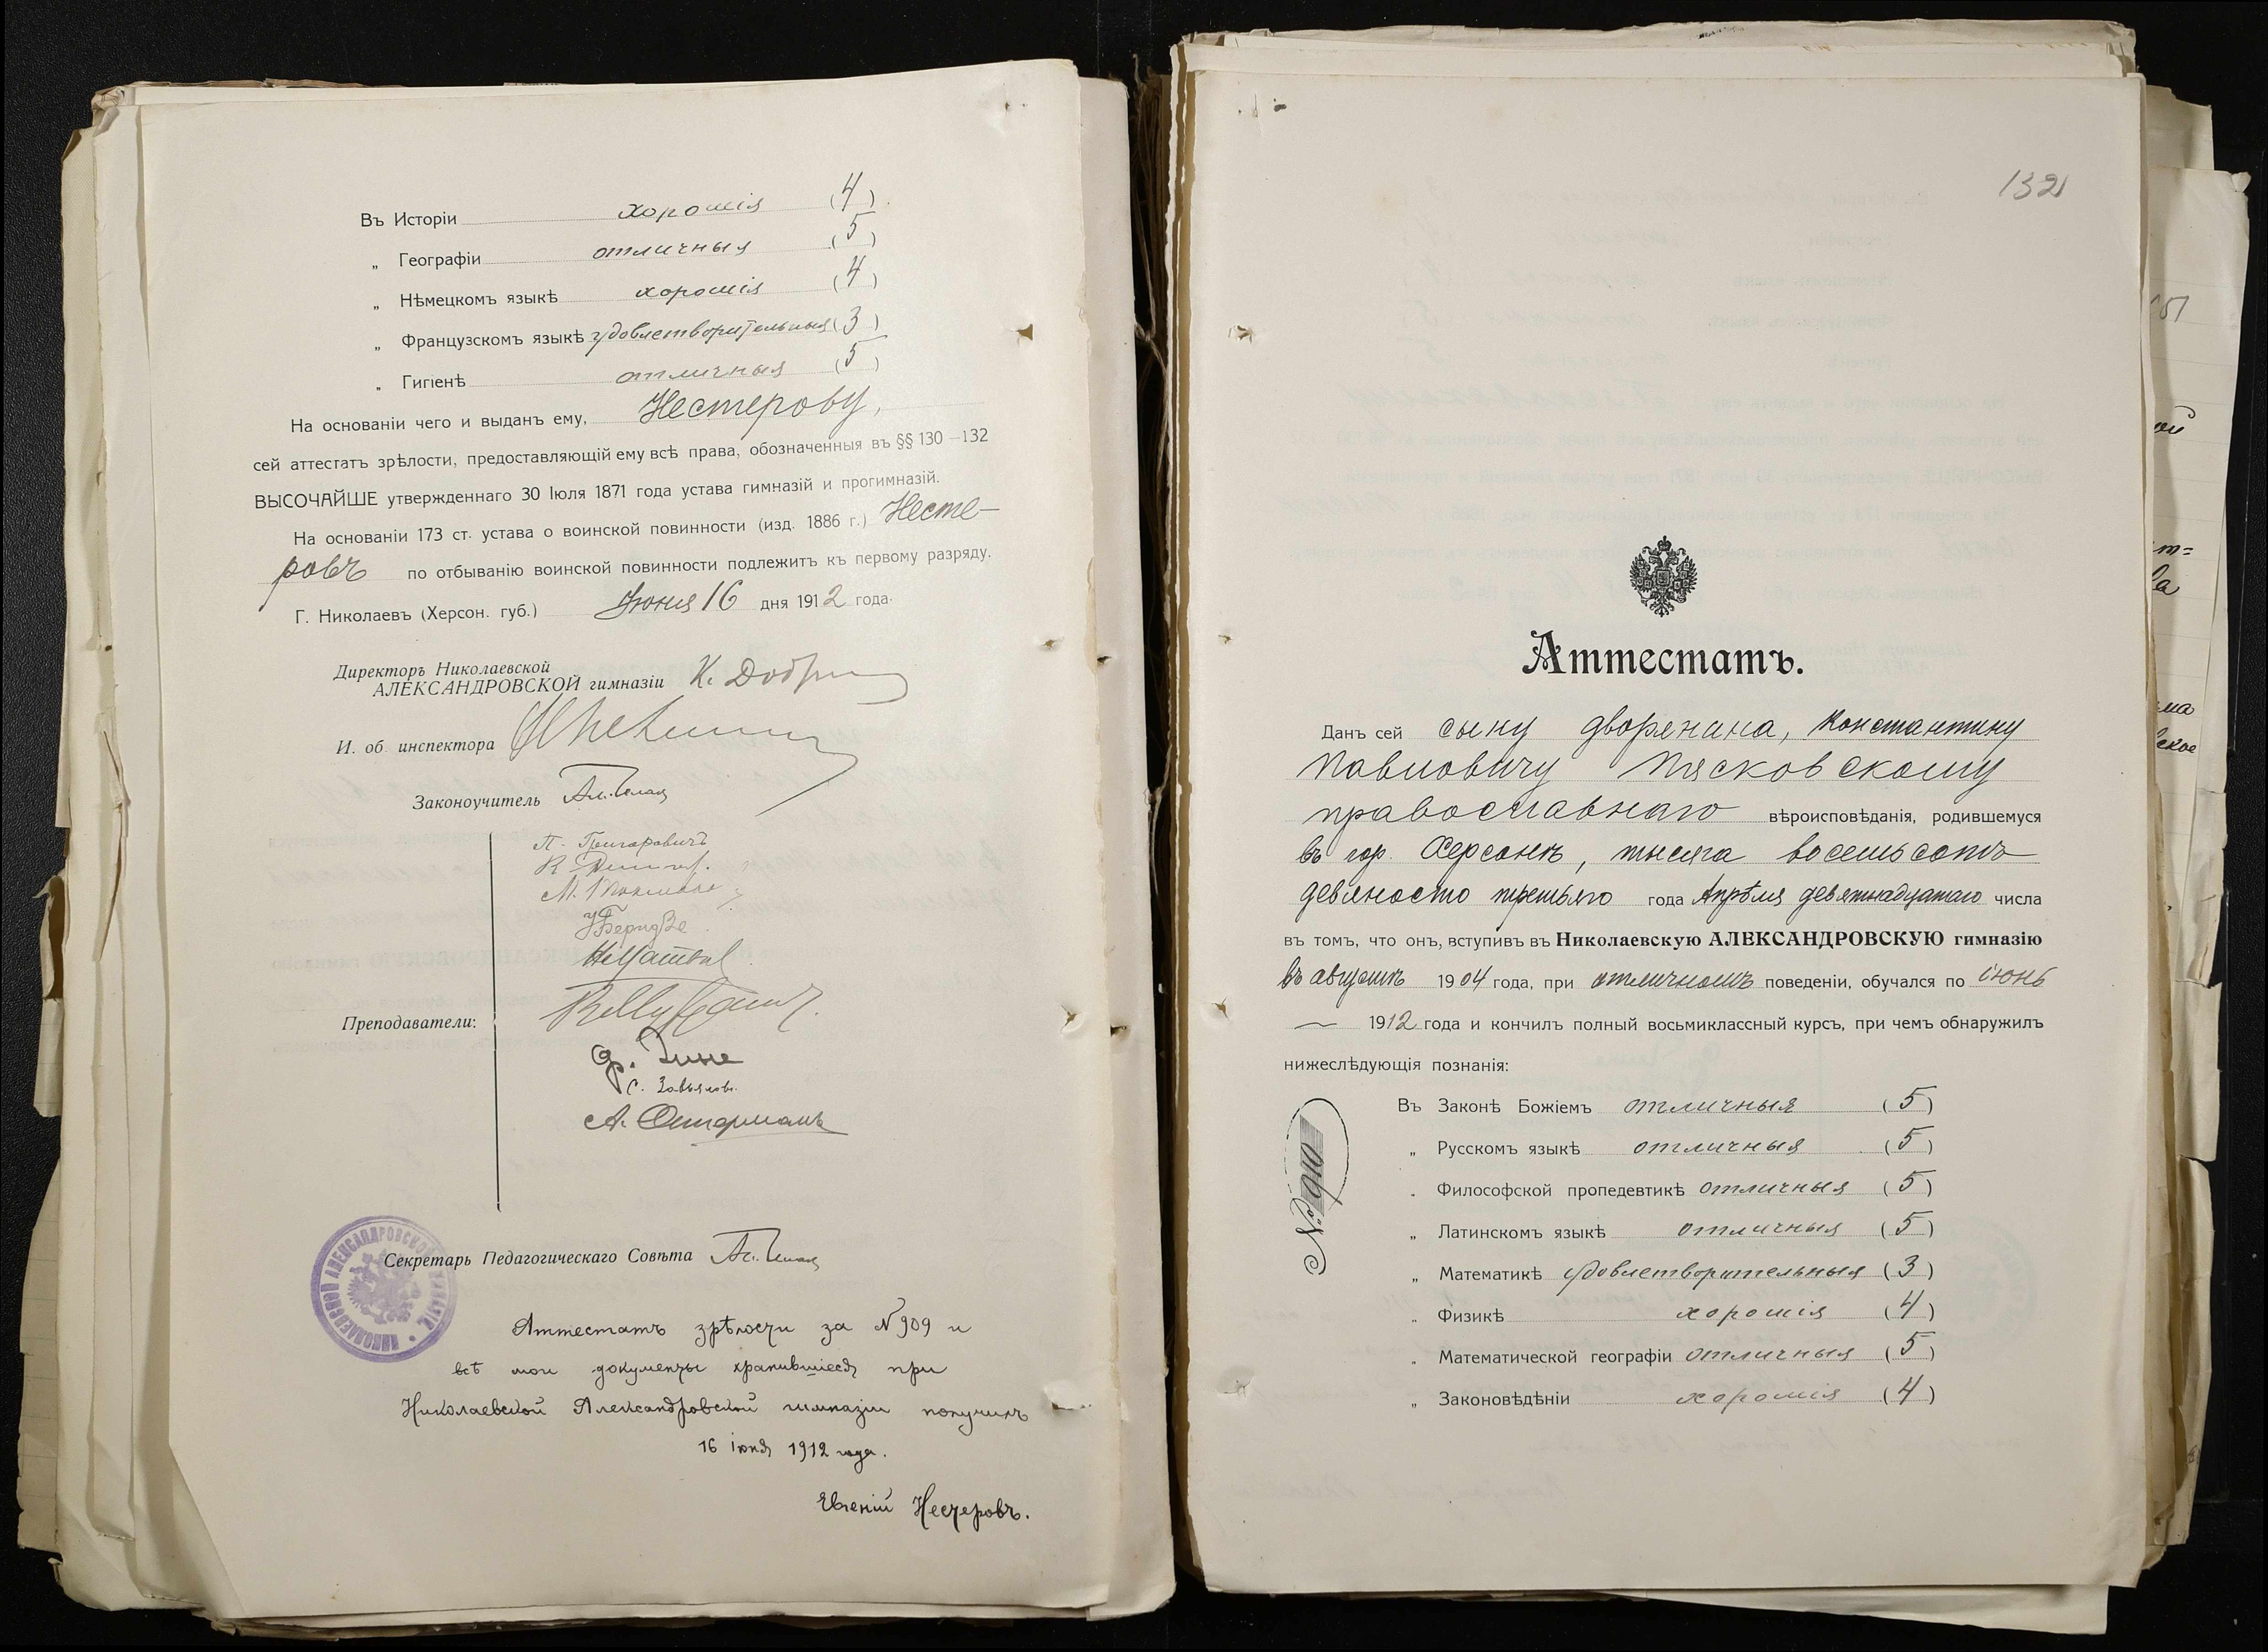 Въ Исторіи хорошія (4)
„ Географіи отличныя (5)
„ Нѣмецкомъ языкѣ хорошія (4)
„ Французскомъ языкѣ удовлетворительныя (3)
„ Гигіенѣ отличныя (5)
На основаніи чего и выданъ ему, Нестерову,
сей аттестатъ зрѣлости, предоставляющій ему всѣ права, обозначенныя въ §§ 130—132
ВЫСОЧАЙШЕ утвержденнаго 30 Іюля 1871 года устава гимназій и прогимназій.
На основаніи 173 ст. устава о воинской повинности (изд. 1886 г.) Несте-
ровъ по отбыванію воинской повинности подлежитъ къ первому разряду.
Г. Николаевъ (Херсон. губ.) Іюня 16 дня 1912 года.
Директоръ Николаевской
АЛЕКСАНДРОВСКОЙ гимназіи К. Добр
И. об. инспектора
Законоучитель
П. Григоровичъ
Преподаватели:
Ф. Дине
С. Завьяловъ.
А. Остерманъ
Секретарь Педагогическаго Совѣта
Аттестатъ зрѣлости за № 909 и
всѣ мои документы хранившіеся при
Николаевской Александровской гимназіи получилъ
16 іюня 1912 года.
Евгеній Нестеровъ.
132
Аттестатъ.
Данъ сей сыну дворянина, Константину
Павловичу Пясковскому
православнаго вѣроисповѣданія, родившемуся
въ гор. Херсонѣ, тысяча восемьсотъ
девяносто третьяго года Апрѣля девятнадцатаго числа
въ томъ, что онъ, вступивъ въ Николаевскую АЛЕКСАНДРОВСКУЮ гимназію
въ августѣ 1904 года, при отличномъ поведеніи, обучался по іюнь
— 1912 года и кончилъ полный восьмиклассный курсъ, при чемъ обнаружилъ
нижеслѣдующія познанія:
Въ Законѣ Божіемъ отличныя (5)
„ Русскомъ языкѣ отличныя (5)
„ Философской пропедевтикѣ отличныя (5)
„ Латинскомъ языкѣ отличныя (5)
„ Математикѣ удовлетворительныя (3)
„ Физикѣ хорошія (4)
„ Математической географіи отличныя (5)
„ Законовѣдѣніи хорошія (4)
№ 910